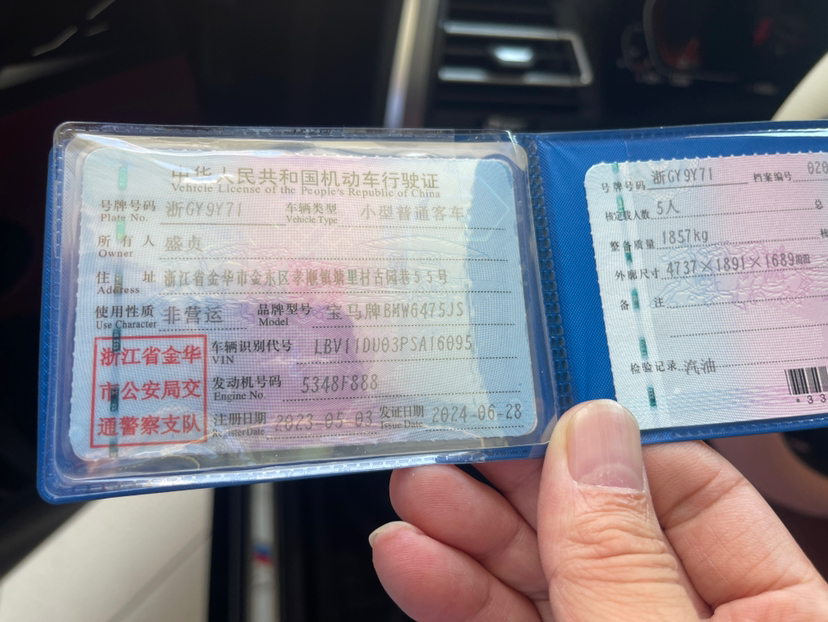 中华人民共和国机动车行驶证
Vehicle License of the People's Republic of China
号牌号码 浙GY9Y71 车辆类型 小型普通客车
Plate No. Vehicle Type
所有人 盛贞
Owner
住址 浙江省金华市金东区孝顺镇塘里村古园巷55号
Address
使用性质 非营运 品牌型号 宝马牌BMW6475JS
Use Character Model
浙江省金华
市公安局交
通警察支队
车辆识别代号 LBV11DU03PSA16095
VIN
发动机号码 5348F888
Engine No.
注册日期 2023-05-03 发证日期 2024-06-28
Register Date Issue Date
号牌号码 浙GY9Y71 档案编号 020
核定载人数 5人 总
整备质量 1857kg 核
外廓尺寸 4737×1891×1689mm
备注
检验记录 汽油
*33